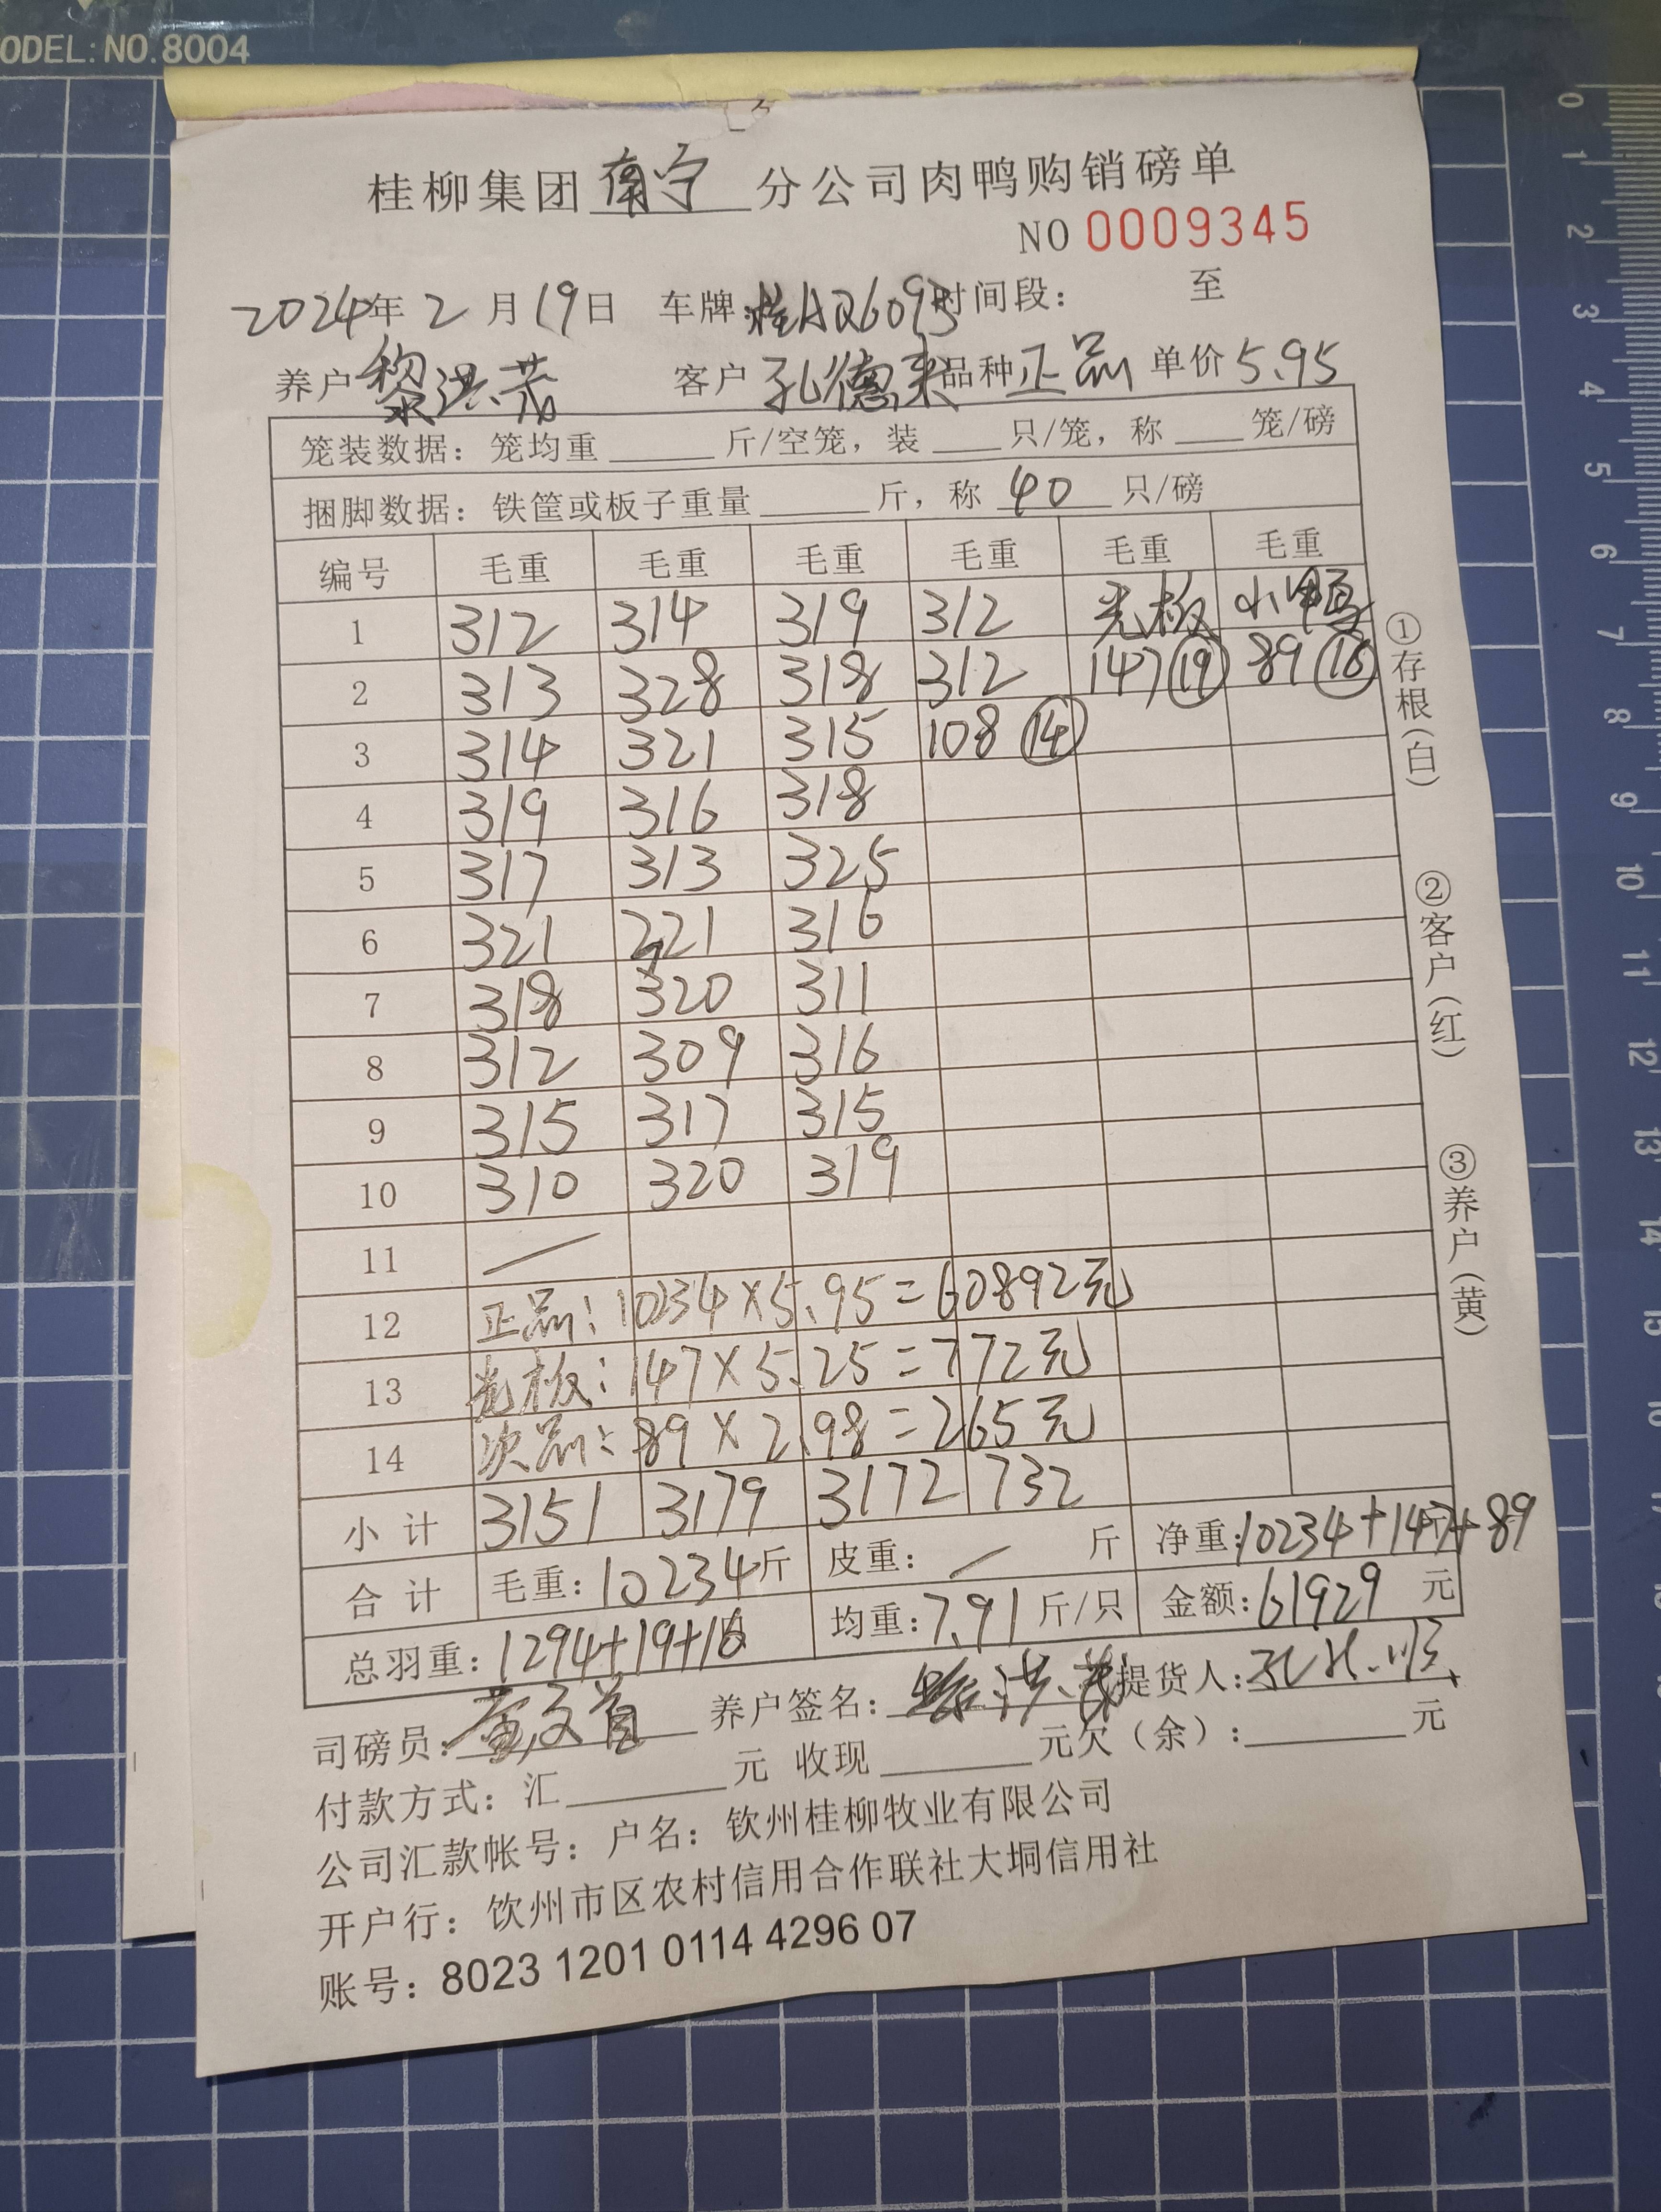 MODEL: NO.8004
桂柳集团南宁分公司肉鸭购销磅单
NO 0009345
2024年2月19日 车牌:桂AQ6093时间段: 至
养户黎洪芳 客户孔德来品种正品单价5.95
笼装数据: 笼均重 斤/空笼, 装 只/笼, 称 笼/磅
捆脚数据: 铁筐或板子重量 斤, 称 40 只/磅
编号 毛重 毛重 毛重 毛重 毛重 毛重
1 312 314 319 312 光板 小鸭
2 313 328 318 312 147⑲ 89⑯
3 314 321 315 108⑭
4 319 316 318
5 317 313 325
6 321 321 316
7 318 320 311
8 312 309 316
9 315 317 315
10 310 320 319
11 —
12 正品: 10234×5.95=60892元
13 光板: 147×5.25=772元
14 次品: 89×2.98=265元
小计 3151 3179 3172 732
合计 毛重: 10234斤 皮重: — 斤 净重: 10234+147+89
总羽重: 1294+19+16 均重: 7.91斤/只 金额: 61929 元
司磅员: 养户签名: 提货人:
付款方式: 汇 元 收现 元欠(余): 元
公司汇款帐号: 户名: 钦州桂柳牧业有限公司
开户行: 钦州市区农村信用合作联社大垌信用社
账号: 8023 1201 0114 4296 07
①存根(白) ②客户(红) ③养户(黄)
0 1 2 3 4 5 6 7 8 9 10 11 12 13 14 15